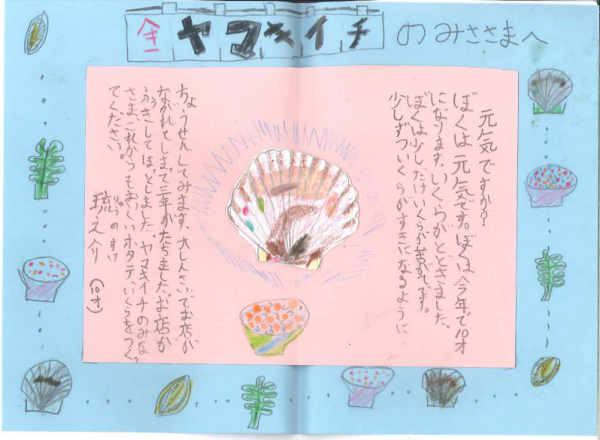 ヤマキイチのみささまへ
元気ですか?
ぼくは元気です。ぼくは、今年で10才
になります。いくらがとどきました。
ぼくは少しだけいくらが苦手です。
少しずついくらがすきになるように、
ちょうせんしてみます。大しんさいでお店が
ながれてしまって三年がたちました。お店が
ふっきしてほっとしました。ヤマキイチのみな
さまこれからもおいしいホタテ、いくらをつくっ
てください。
りゅうのすけ
琉之介 (10才)